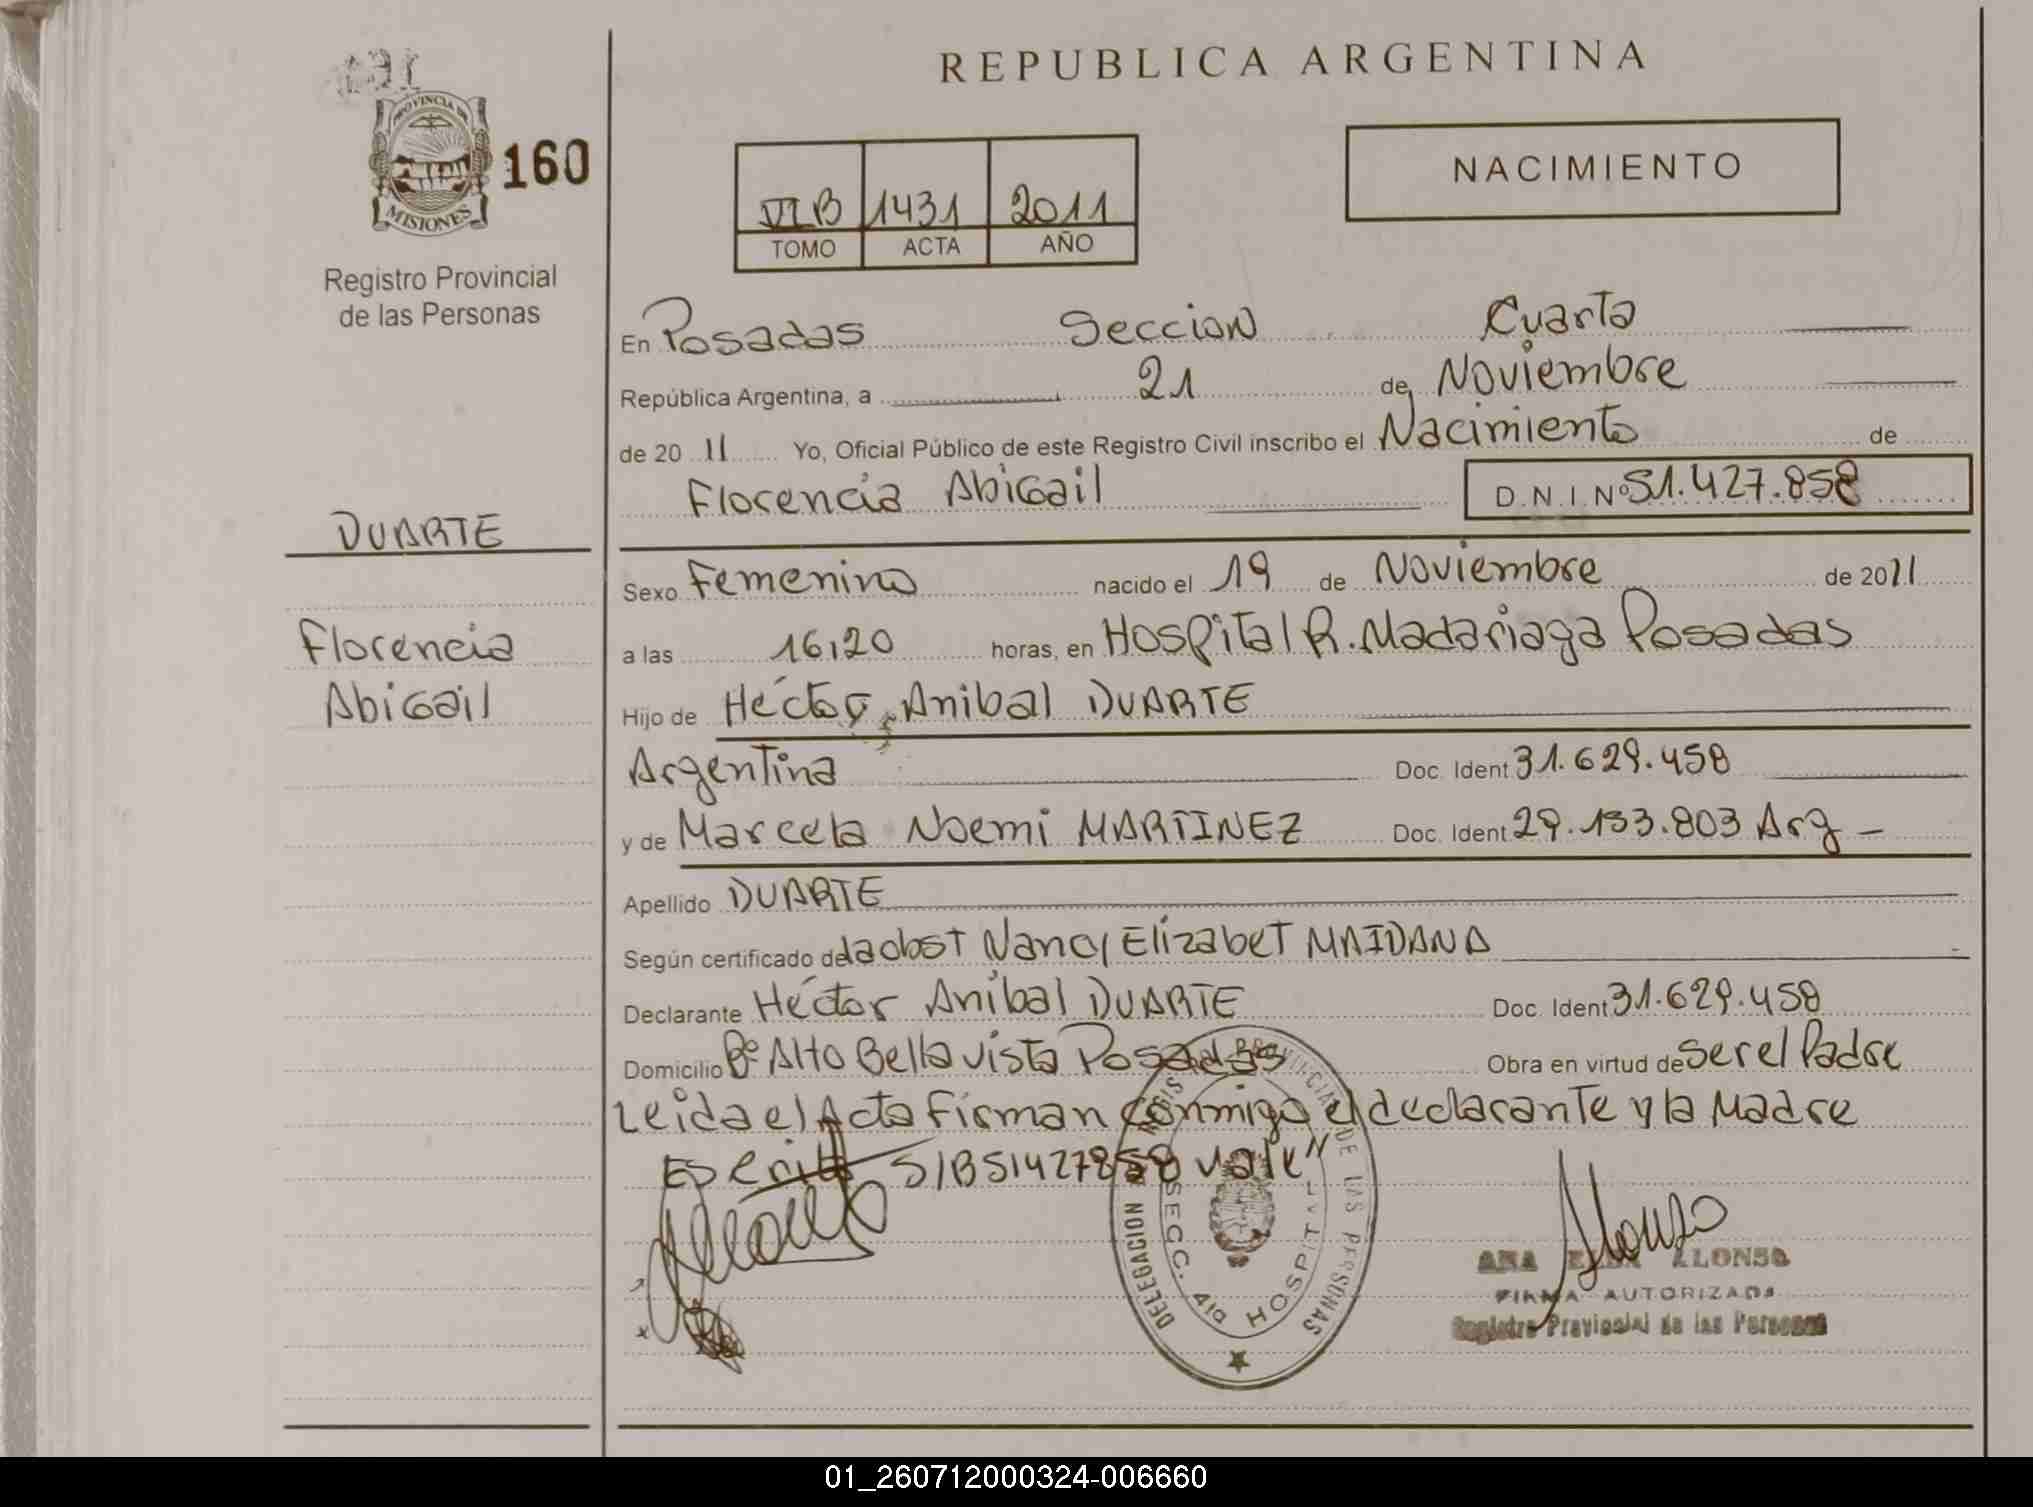 REPUBLICA ARGENTINA
PROVINCIA DE
MISIONES
160
Registro Provincial
de las Personas
VI B 1431 2011
TOMO ACTA AÑO
NACIMIENTO
En Posadas Seccion Cuarta
República Argentina, a 21 de Noviembre
de 20 11 Yo, Oficial Público de este Registro Civil inscribo el Nacimiento de
Florencia Abigail D.N.I. Nº 51.427.858
DUARTE
Florencia
Abigail
Sexo Femenino nacido el 19 de Noviembre de 2011
a las 16,20 horas, en Hospital R. Madariaga Posadas
Hijo de Héctor Anibal DUARTE
Argentina Doc. Ident 31.629.458
y de Marcela Noemi MARTINEZ Doc. Ident 29.133.803 Arg -
Apellido DUARTE
Según certificado de la obst Nancy Elizabet MAIDANA
Declarante Héctor Anibal DUARTE Doc. Ident 31.629.458
Domicilio Bº Alto Bella vista Posadas Obra en virtud de ser el Padre
Leida el Acta firman conmigo el declarante y la Madre
S/B 51427858 vale"
DELEGACION REGIS PROVINCIAL DE LAS PERSONAS
SECC. 4ta HOSPITAL
Alonso
ANA ALONSO
FIRMA AUTORIZADA
Registro Provincial de las Personas
01_260712000324-006660